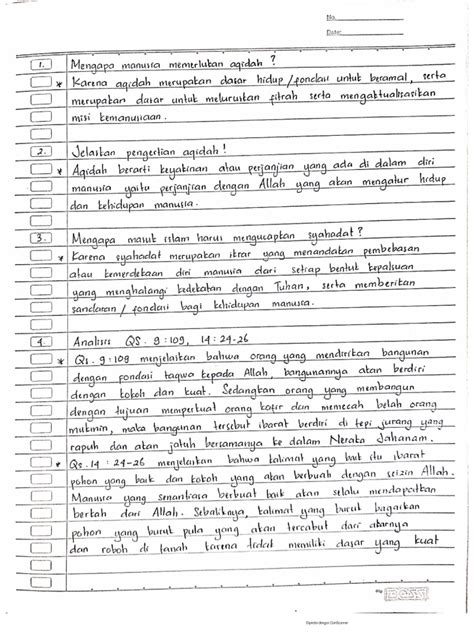 No.
Date:
1. Mengapa manusia memerlukan aqidah ?
* Karena aqidah merupakan dasar hidup /fondasi untuk beramal, serta
merupakan dasar untuk meluruskan fitrah serta mengaktualisasikan
misi kemanusiaan.
2. Jelaskan pengertian aqidah !
* Aqidah berarti keyakinan atau perjanjian yang ada di dalam diri
manusia yaitu perjanjian dengan Allah yang akan mengatur hidup
dan kehidupan manusia.
3. Mengapa masuk islam harus mengucapkan syahadat ?
* Karena syahadat merupakan ikrar yang menandakan pembebasan
atau kemerdekaan diri manusia dari setiap bentuk kepalsuan
yang menghalangi kedekatan dengan Tuhan, serta memberikan
sandaran / fondasi bagi kehidupan manusia.
4. Analisis QS. 9:109, 14:24-26
* Qs. 9:109 menjelaskan bahwa orang yang mendirikan bangunan
dengan fondasi taqwa kepada Allah, bangunannya akan berdiri
dengan kokoh dan kuat. Sedangkan orang yang membangun
dengan tujuan memperkuat orang kafir dan memecah belah orang
mukmin, maka bangunan tersebut ibarat berdiri di tepi jurang yang
rapuh dan akan jatuh bersamanya ke dalam Neraka Jahanam.
* Qs. 14 : 24-26 menjelaskan bahwa kalimat yang baik itu ibarat
pohon yang baik dan kokoh yang akan berbuah dengan seizin Allah.
Manusia yang senantiasa berbuat baik akan selalu mendapatkan
berkah dari Allah. Sebaliknya, kalimat yang buruk bagaikan
pohon yang buruk pula yang akan tercabut dari akarnya
dan roboh di tanah karena tidak memiliki dasar yang kuat
Dipindai dengan CamScanner